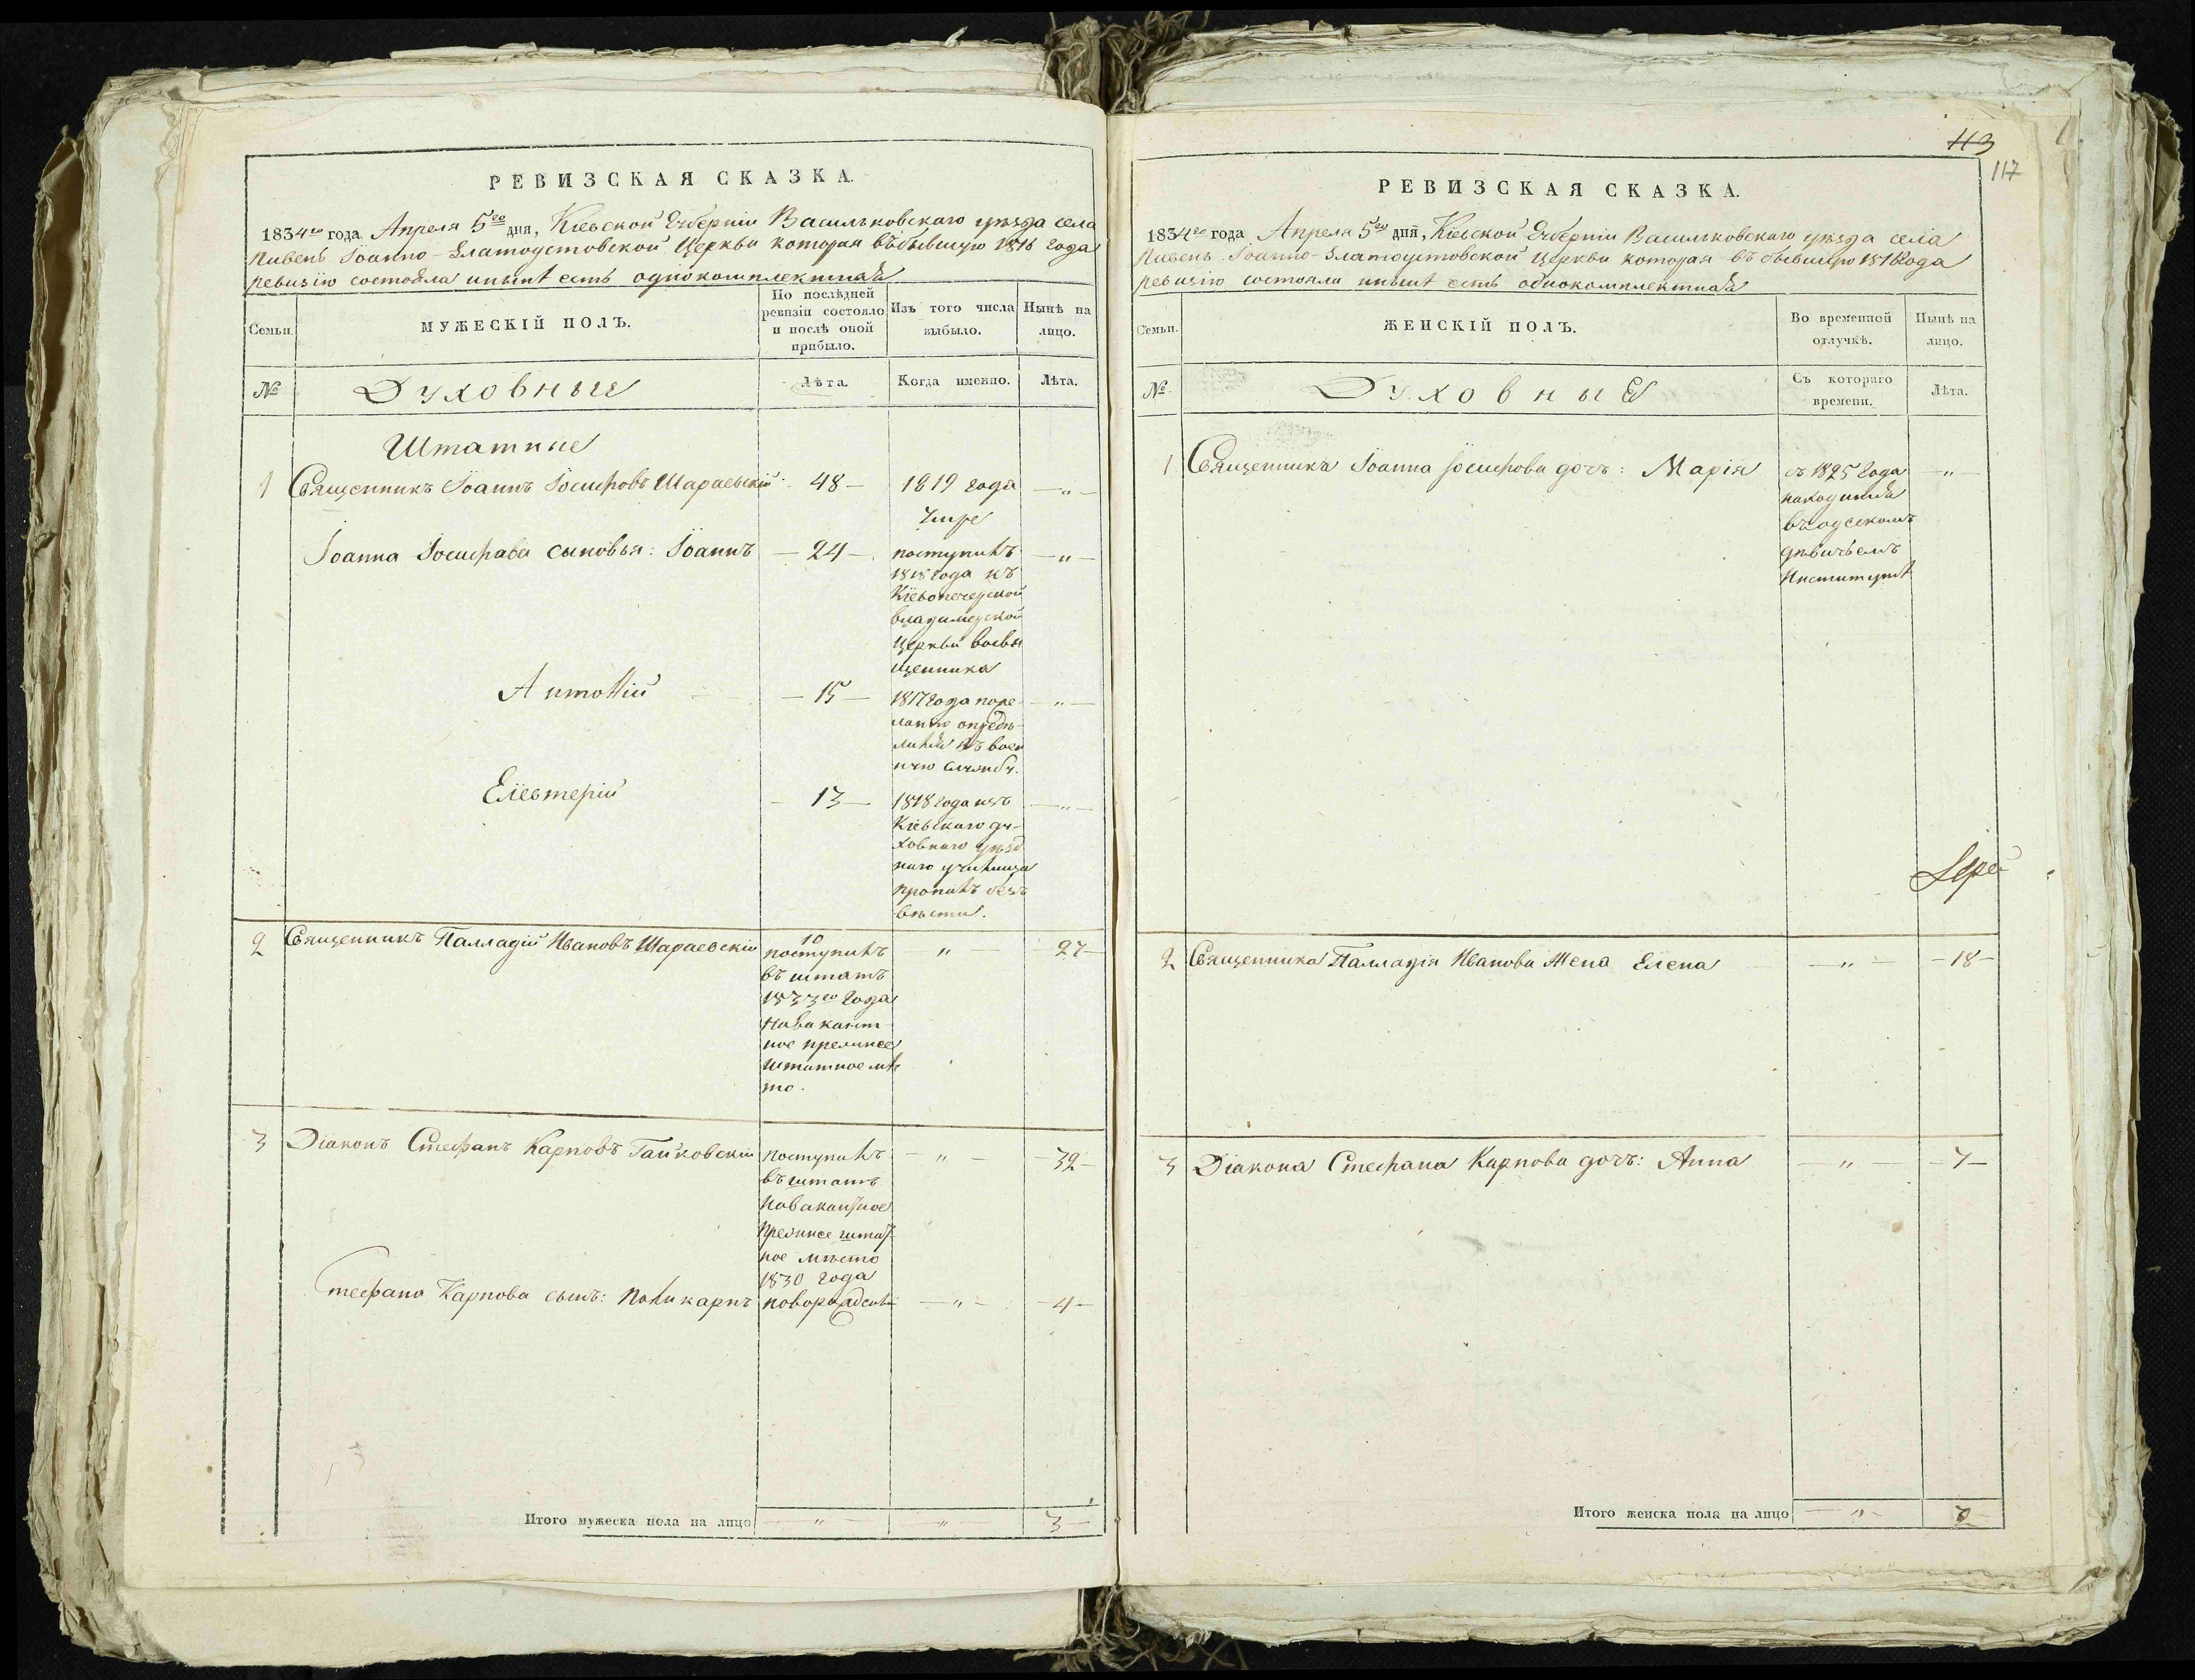 РЕВИЗСКАЯ СКАЗКА.
1834го года Апреля 5го дня, Кіевской Губерніи Васильковскаго уѣзда села
Пивень Іоанно-Златоустовской Церкви которая въ бывшую 1816 года
ревизію состояла и нынѣ есть однокомплектная
Семьи.
МУЖЕСКІЙ ПОЛЪ.
По послѣдней
ревизіи состояло
и послѣ оной
прибыло.
Изъ того числа
выбыло.
Нынѣ на
лицо.
№
Духовные
Лѣта.
Когда именно.
Лѣта.
Штатные
1 Священникъ Іоаннъ Іосифовъ Шараевскій — 48 — 1819 года — „ —
умре
Іоанна Іосифова сыновья: Іоаннъ — 24 — поступилъ — „ —
1818 года къ
Кіевопечерской
владимерской
Церкви восвя
щенника
Антоній — 15 — 1817 года поже — „ —
ланію опредѣ-
лился въ воен
ную службу.
Елевтерій — 13 — 1818 года изъ — „ —
Кіевскаго ду-
ховнаго уѣзд
наго училища
пропилъ безъ
вѣсти.
2 Священникъ Палладій Ивановъ Шараевскій 10 — „ — 27 —
поступилъ
въ штатъ
1833го года
на вакант
ное прежнее
штатное мѣ
то.
3 Діаконъ Стефанъ Карповъ Гайковскій поступилъ — „ — — 32 —
въ штатъ
на вакантное
прежнее штат
ное мѣсто
1830 года
Стефана Карпова сынъ: Поликарпъ новорожденъ — „ — — 4 —
Итого мужеска пола на лицо — „ — — „ — 3 —
113
117
РЕВИЗСКАЯ СКАЗКА.
1834го года Апреля 5го дня, Кіевской Губерніи Васильковскаго уѣзда села
Пивень Іоанно-Златоустовской Церкви которая въ бывшую 1816 года
ревизію состояла и нынѣ есть однокомплектная
Семьи.
ЖЕНСКІЙ ПОЛЪ.
Во временной
отлучкѣ.
Нынѣ на
лицо.
№
Духовные
Съ котораго
времени.
Лѣта.
1 Священника Іоанна Іосифова дочь: Марія съ 1825 года — „ —
находится
въ одсскомъ
дѣвичьемъ
Институтѣ
Іерей
2 Священника Палладія Иванова Жена Елена — „ — — 18 —
3 Діакона Стефана Карпова дочь: Анна — „ — — 7 —
Итого женска пола на лицо — „ —